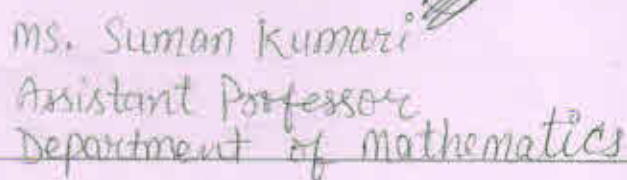 Ms. Suman Kumari
Assistant Professor
Department of Mathematics